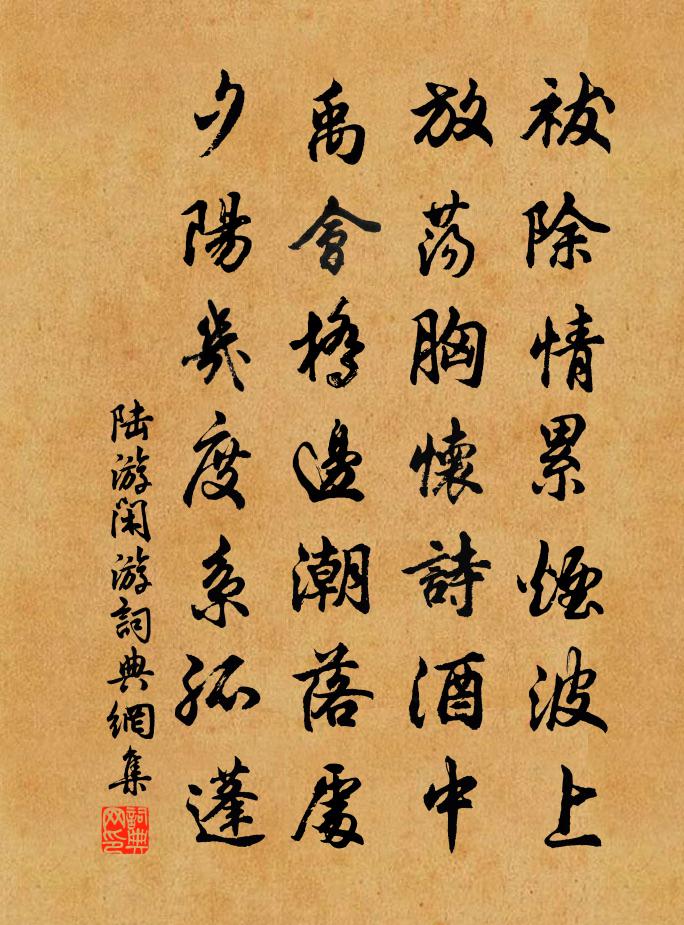 祓除情累煙波上
放荡胸懷詩酒中
禹會橋邊潮落處
夕陽幾度系孤蓬
陆游闲游詞典網集
詞典网印